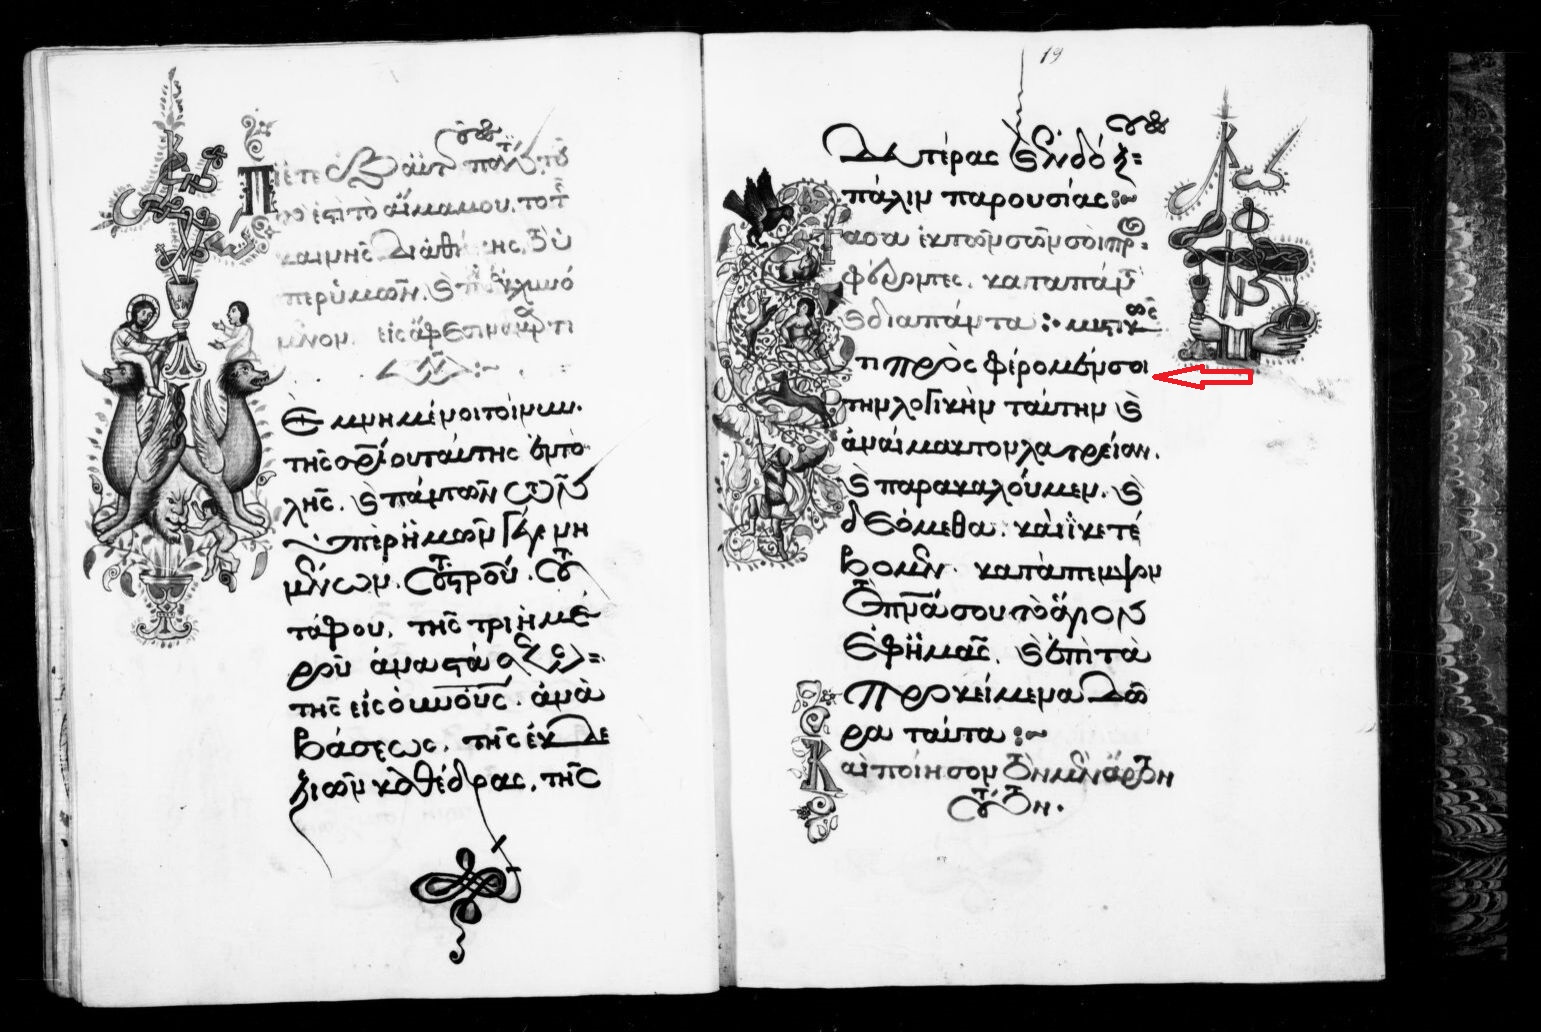 Πίετε ἐξ αὐτοῦ πάντες, τοῦ
τό ἐστι τὸ αἷμά μου, τὸ τῆς
καινῆς διαθήκης, τὸ ὑ
πὲρ ὑμῶν, καὶ πολλῶν ἐκχυνό
μενον, εἰς ἄφεσιν ἁμαρτι
ῶν :~
Μεμνημένοι τοίνυν
τῆς σωτηρίου ταύτης ἐντο
λῆς, καὶ πάντων τῶν
ὑπὲρ ἡμῶν γεγενη
μένων, τοῦ στροῦ, τοῦ
τάφου, τῆς τριημέ
ρου ἀναστάσεως
τῆς εἰς οὐνούς ἀνα
βάσεως, τῆς ἐκ δε
ξιῶν καθέδρας, τῆς
19
δευτέρας καὶ ἐνδόξου
πάλιν παρουσίας :~
Τὰ σὰ ἐκ τῶν σῶν σοὶ προσ
φέρομεν, κατὰ πάντα
καὶ διὰ πάντα :· μυστικῶς
Ἔτι προσφέρομέν σοι
τὴν λογικὴν ταύτην καὶ
ἀναίμακτον λατρείαν,
καὶ παρακαλοῦμεν, καὶ
δεόμεθα, καὶ ἱκετεύ
ομεν, κατάπεμψον
τὸ πνᾶ σου τὸ ἅγιον
ἐφ' ἡμᾶς, καὶ ἐπὶ τὰ
προκείμενα δῶ
ρα ταῦτα :~
Καὶ ποίησον τὸν μὲν ἄρτον
τοῦτον.